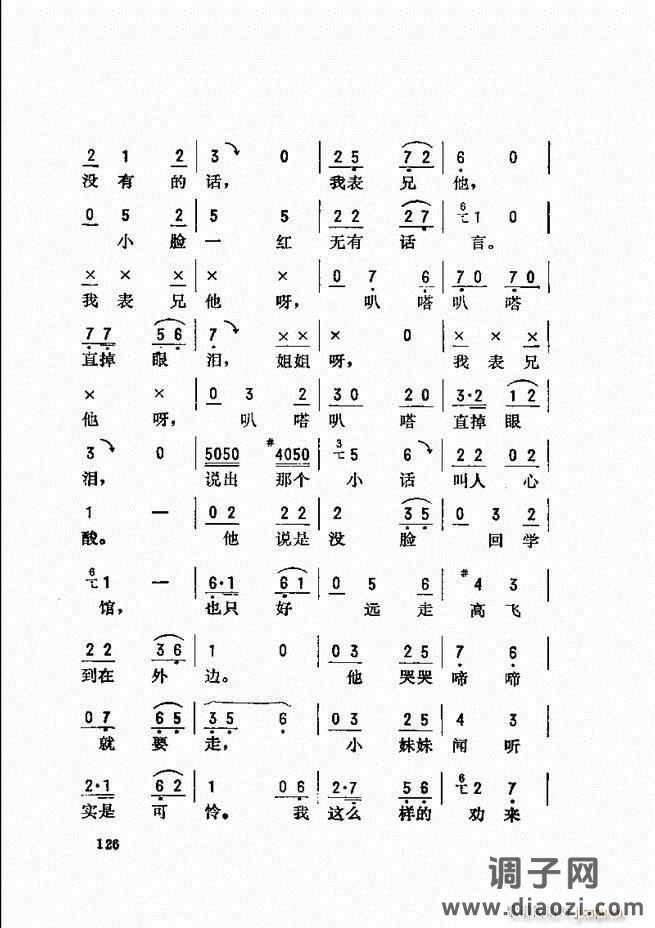 2 1 2 | 3 0 | 2 5 7 2 | 6 0 |
没有的话， 我表兄他，
0 5 2 | 5 5 | 2 2 2 7 | 6 1 0 |
小脸一红 无有话言。
× × × | × × | 0 7 6 | 7 0 7 0 |
我表兄他呀， 叭嗒叭嗒
7 7 5 6 | 7 × × | × 0 | × × × |
直掉眼泪，姐姐呀， 我表兄
× × | 0 3 2 | 3 0 2 0 | 3·2 1 2 |
他呀， 叭嗒叭嗒直掉眼
3 0 | 5050 #4050 | 3 5 6 | 2 2 0 2 |
泪， 说出那个小话叫人心
1 — | 0 2 2 2 | 2 3 5 | 0 3 2 |
酸。 他说是没脸回学
6 1 — | 6·1 6 1 | 0 5 6 | #4 3 |
馆， 也只好远走高飞
2 2 3 6 | 1 0 | 0 3 2 5 | 7 6 |
到在外边。 他哭哭啼啼
0 7 6 5 | 3 5 6 | 0 3 2 5 | 4 3 |
就要走， 小妹妹闻听
2·1 6 2 | 1 0 6 | 2·7 5 6 | 6 2 7 |
实是可怜。我这么样的劝来
126
调子网
www.diaozi.com